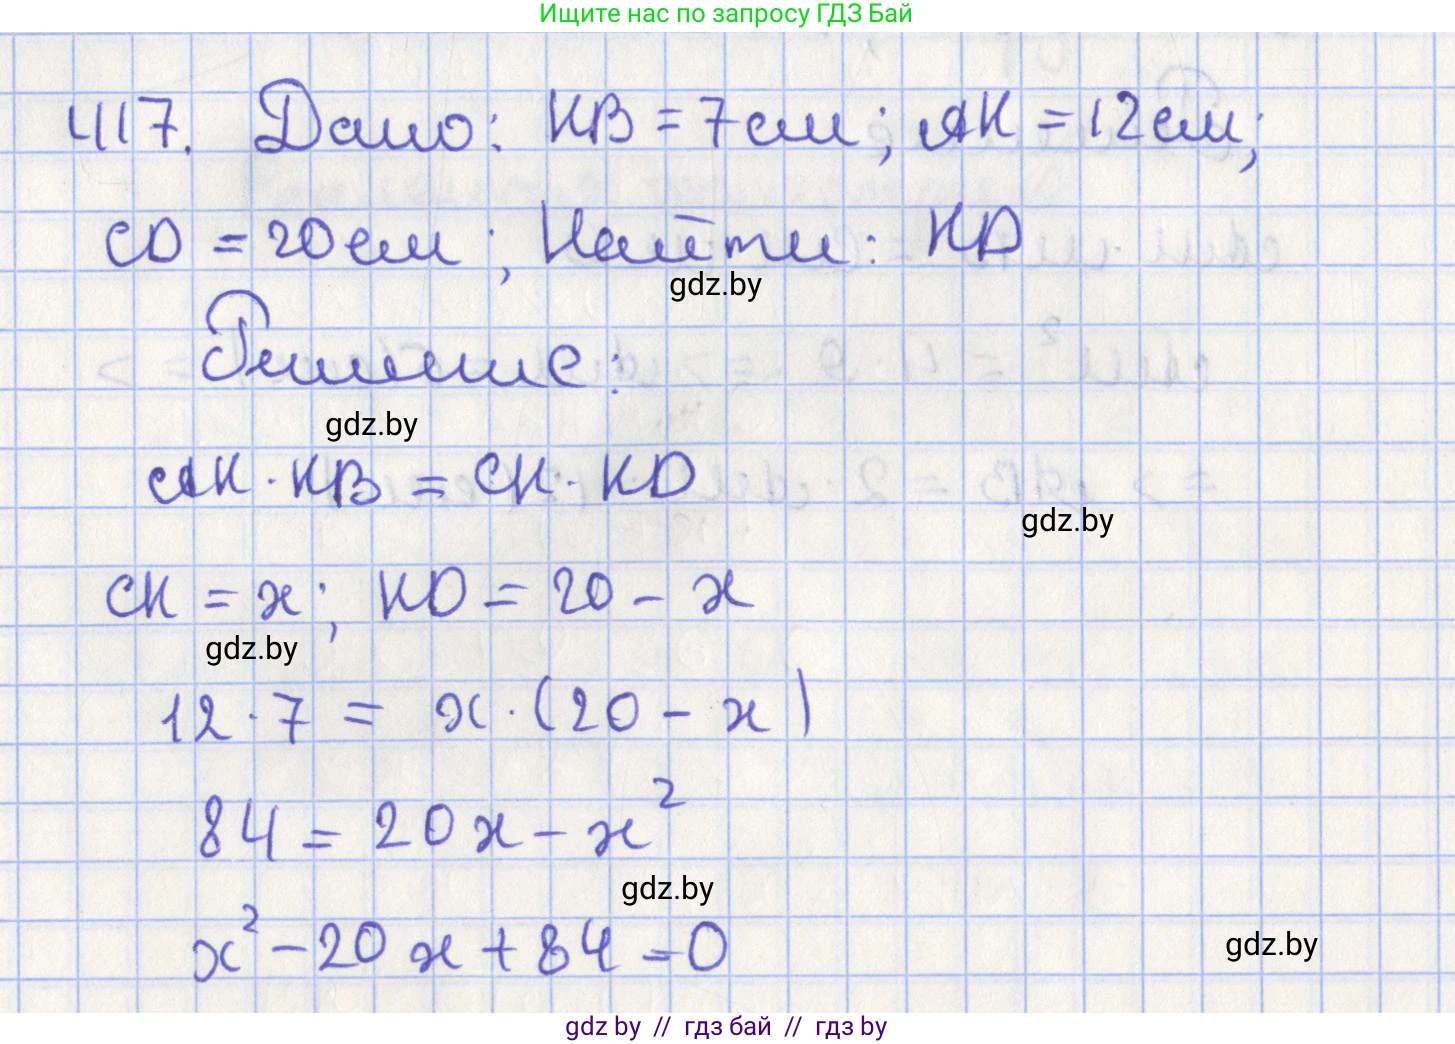 Ищите нас по запросу ГДЗ Бай
417. Дано: KB = 7 см; AK = 12 см;
CD = 20 см; Найти: KD
gdz.by
Решение:
gdz.by
AK · KB = CK · KD
gdz.by
CK = x; KD = 20 - x
gdz.by
12 · 7 = x · (20 - x)
84 = 20x - x²
gdz.by
x² - 20x + 84 = 0
gdz.by
gdz by // гдз бай // гдз by